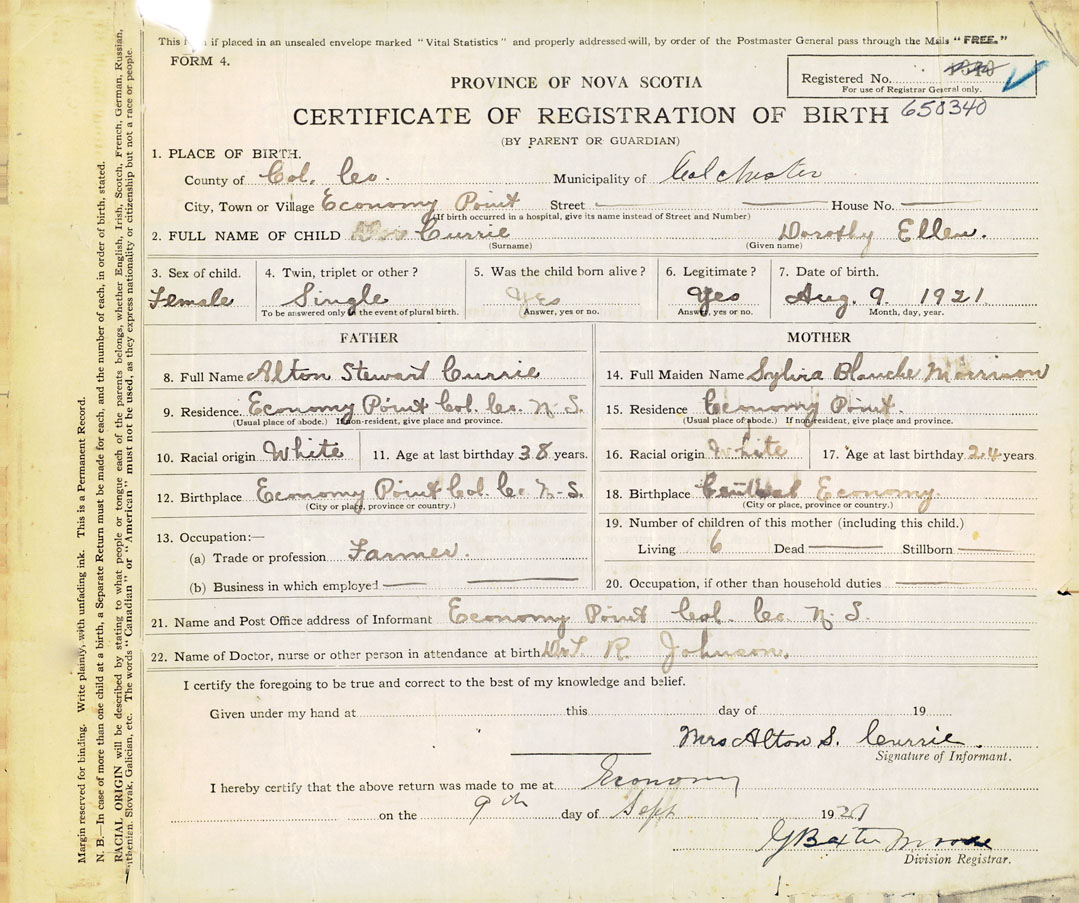 This if placed in an unsealed envelope marked "Vital Statistics" and properly addressed will, by order of the Postmaster General pass through the Mails "FREE."
FORM 4.
Registered No.
For use of Registrar General only.
PROVINCE OF NOVA SCOTIA
CERTIFICATE OF REGISTRATION OF BIRTH 650340
(BY PARENT OR GUARDIAN)
1. PLACE OF BIRTH.
County of Col. Co. Municipality of Colchester
City, Town or Village Economy Point Street House No.
(If birth occurred in a hospital, give its name instead of Street and Number)
2. FULL NAME OF CHILD Currie Dorothy Ellen.
(Surname) (Given name)
3. Sex of child. 4. Twin, triplet or other? 5. Was the child born alive? 6. Legitimate? 7. Date of birth.
Female Single Yes Yes Aug. 9. 1921
To be answered only in the event of plural birth. Answer, yes or no. Answer, yes or no. Month, day, year.
FATHER MOTHER
8. Full Name Alton Stewart Currie 14. Full Maiden Name Sylvia Blanche Morrison
9. Residence. Economy Point Col. Co. N.S. 15. Residence Economy Point.
(Usual place of abode.) If non-resident, give place and province. (Usual place of abode.) If non-resident, give place and province.
10. Racial origin White 11. Age at last birthday 38 years. 16. Racial origin White 17. Age at last birthday 24 years
12. Birthplace Economy Point Col. Co. N.S. 18. Birthplace Central Economy.
(City or place, province or country.) (City or place, province or country.)
13. Occupation:— 19. Number of children of this mother (including this child.)
(a) Trade or profession Farmer. Living 6 Dead Stillborn
(b) Business in which employed 20. Occupation, if other than household duties
21. Name and Post Office address of Informant Economy Point Col. Co. N.S.
22. Name of Doctor, nurse or other person in attendance at birth R. Johnson.
I certify the foregoing to be true and correct to the best of my knowledge and belief.
Given under my hand at this day of 19
Mrs Alton S. Currie.
Signature of Informant.
I hereby certify that the above return was made to me at Economy
on the 9th day of Sept 1921
Baxter Moore
Division Registrar.
Margin reserved for binding. Write plainly, with unfading ink. This is a Permanent Record.
N. B.—In case of more than one child at a birth, a Separate Return must be made for each, and the number of each, in order of birth, stated.
RACIAL ORIGIN will be described by stating to what people or tongue each of the parents belongs, whether English, Irish, Scotch, French, German, Russian,
Slovak, Galician, etc. The words "Canadian" or "American" must not be used, as they express nationality or citizenship but not a race or people.